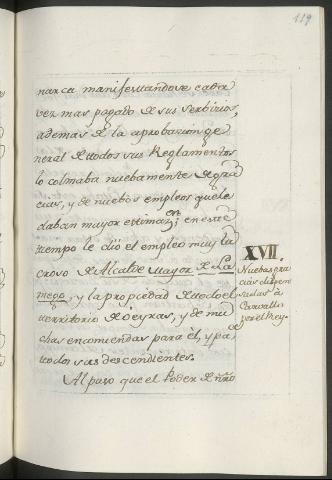 119
narca manifestandose cada
vez mas pagado de sus servicios,
ademas de la aprobacion ge
neral de todos sus Reglamentos
lo colmaba nuebamente de gra
cias, y de nuebos empleos que le
daban mayor estimaon; en este
tiempo le dió el empleo muy lu
croso de Alcalde Mayor de La
mego, y la propiedad de todo el
territorio de Oeyras, y de mu
chas encomiendas para él, y pa
todos sus descendientes.
Al paso que el Poder de nro
XVII.
Nuebas gra
cias dispen
sadas à
Caravallo
por el Rey.